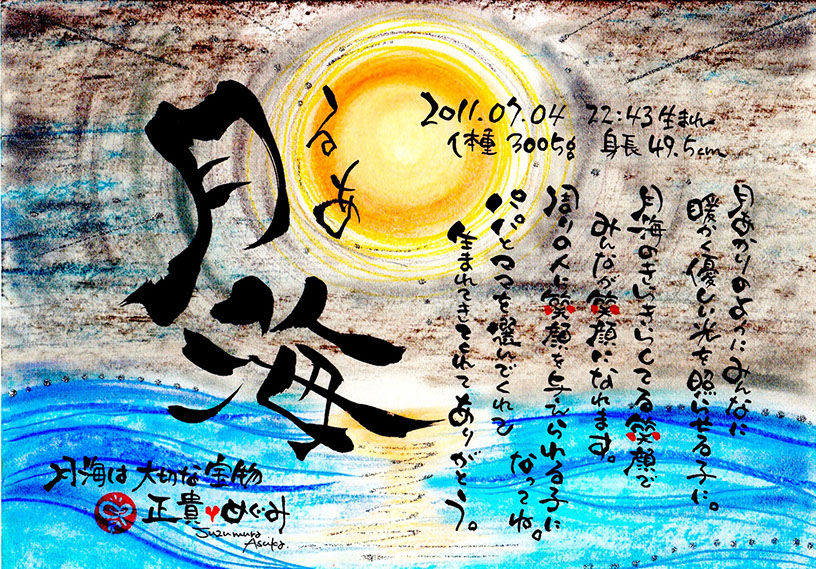 月海
るあ
2011.07.04 22:43生まれ
体重 3005g 身長 49.5cm
月あかりのようにみんなに
暖かく優しい光を照らせる子に。
月海のきらきらしてる笑顔で
みんなが笑顔になれます。
周りの人に笑顔を与えられる子に
なってね。
パパとママを選んでくれて
生まれてきてくれてありがとう。
月海は大切な宝物
正貴♥めぐみ
Suzumura
Asuka.